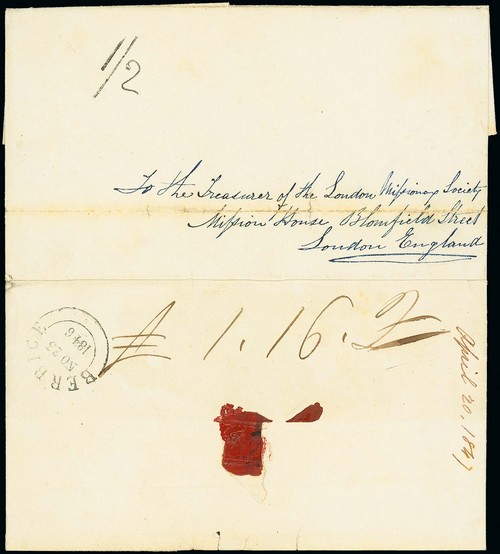 1/2
To the Treasurer of the London Missionary Society
Mission House Blomfield Street
London England
BERBICE
NO 23
1846
1.16.
April 20, 1847